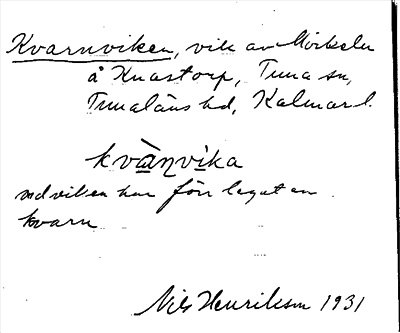 Kvarnviken, vik av Mörkeln
å Knastorp, Tuna sn,
Tunaläns hd, Kalmar l.
kvàɳvika
vid viken har förr legat en
kvarn
Nils Henrikson 1931